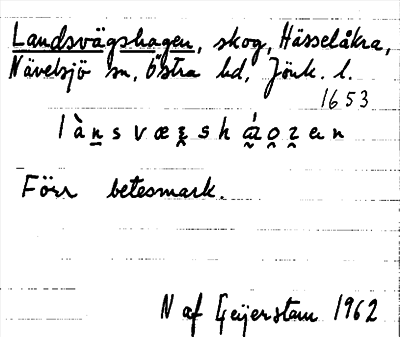 Landsvägshagen, skog, Hässelåkra,
Nävelsjö sn, Östra hd, Jönk. l.
1653
Förr betesmark.
N af Geijerstam 1962